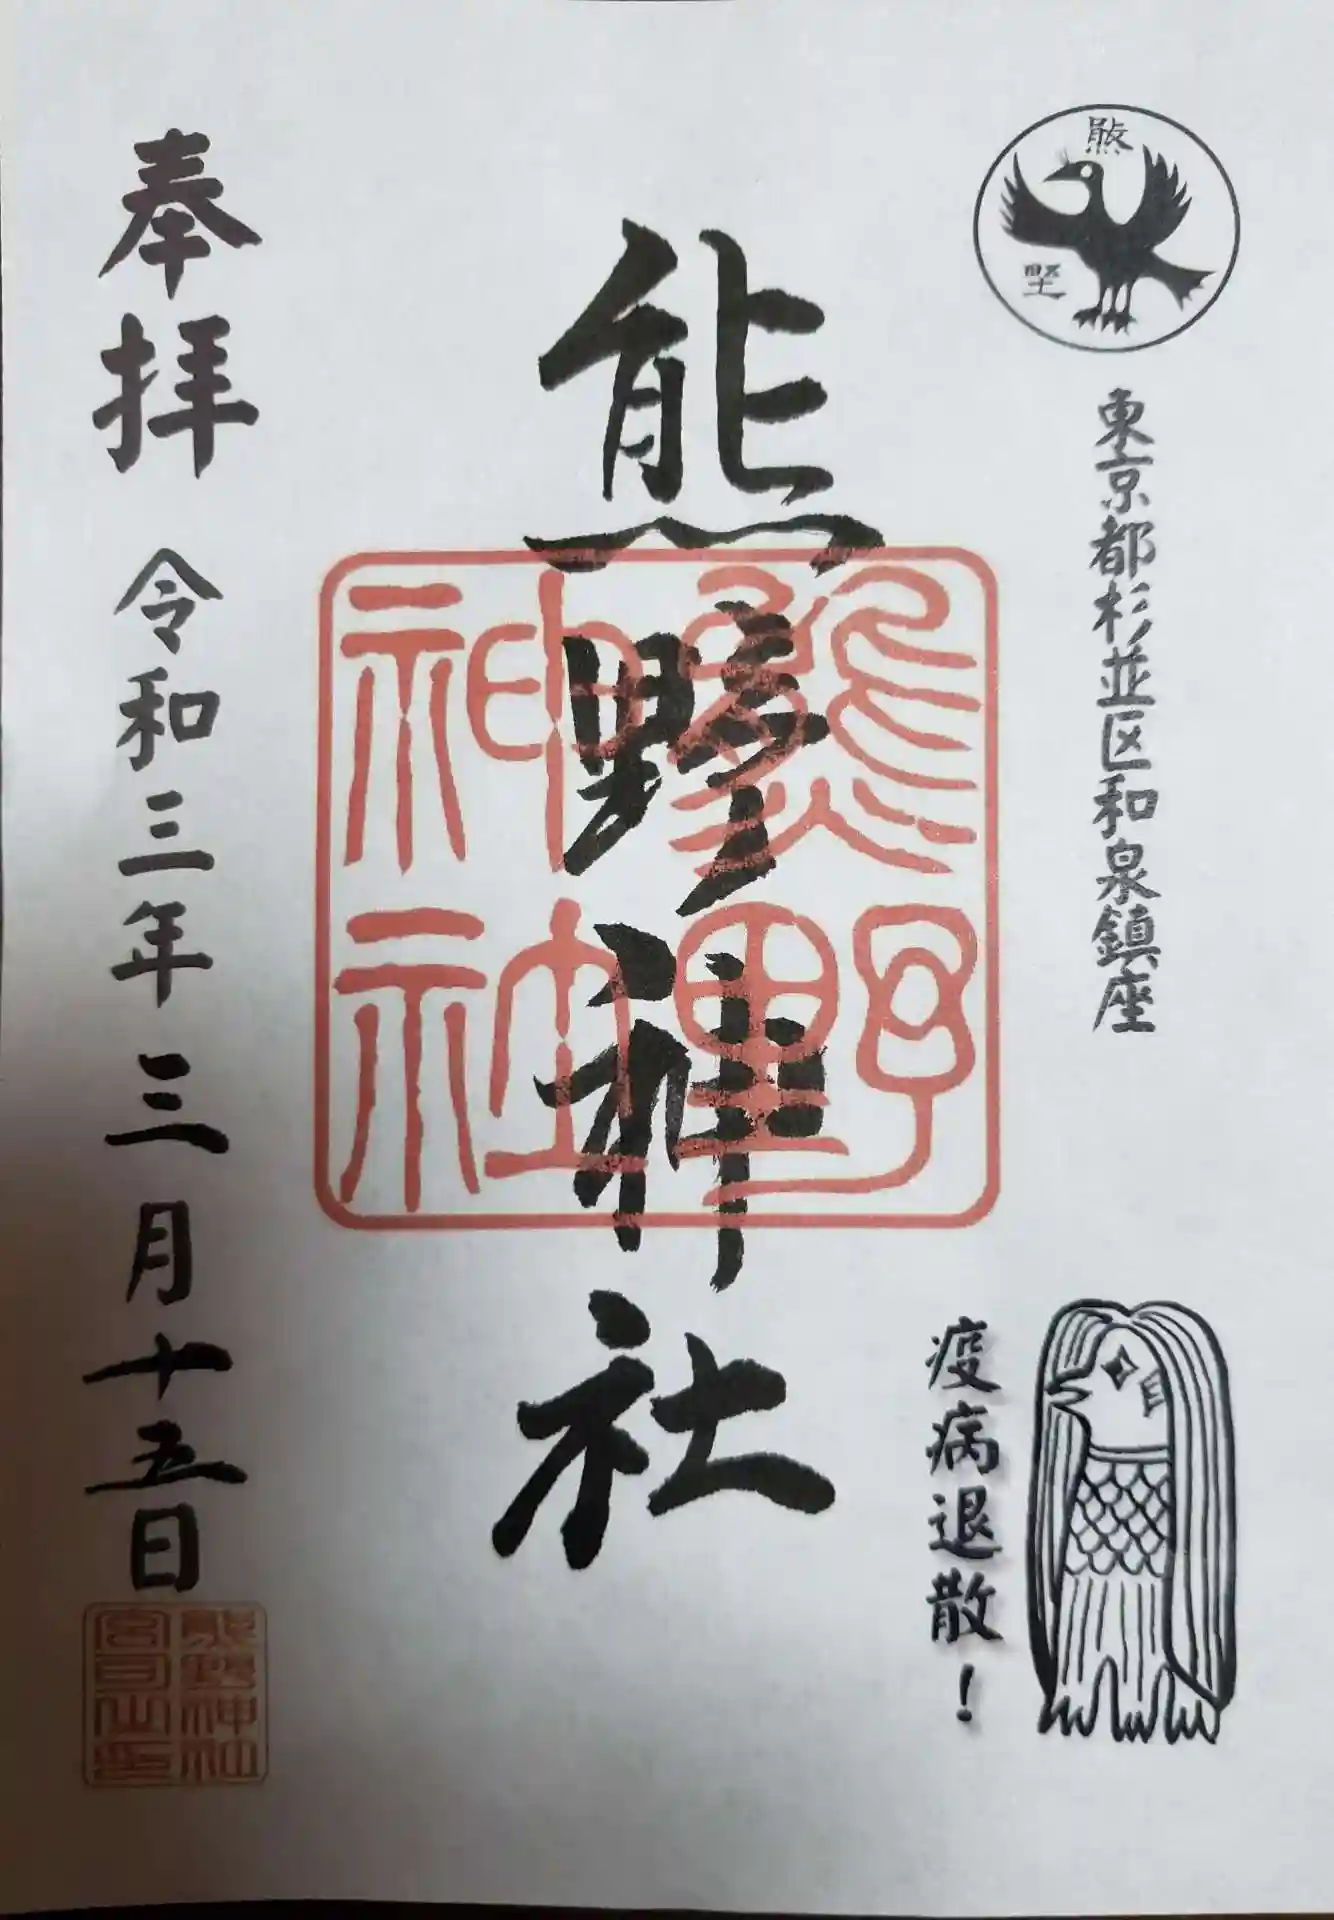 熊野
東京都杉並区和泉鎮座
疫病退散！
熊野神社
熊野神社
奉拝
令和三年三月十五日
熊野神社
宮司之印